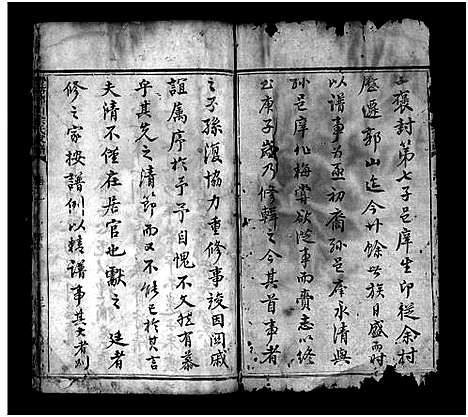 褒封第七子邑庠生印從余村
歷遷郭山迄今卅餘世族日盛而時
以譜事為亟初裔孫邑庠永清與
孫邑庠北梅嘗欲從事而賚志以終
公庚子歲乃修輯之今其首事者
之子孫復協力重修事竣因閲戚
誼属序於予予自愧不文然有慕
乎其先之清節而又不能已於其言
夫清不僅在居官也獻之廷者
修之家按譜例以精譜事其大者別